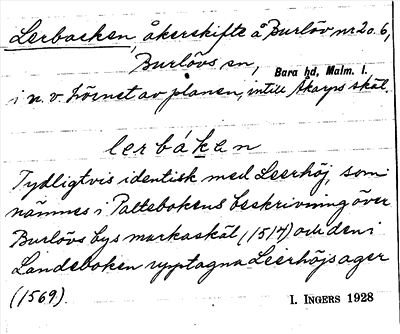 Lerbacken, åkerskifte å Burlöv nr 20.6,
Burlövs sn, Bara hd, Malm. l.
i n.v. hörnet av planen, intill Åkarps skäl.
lerbáken
Tydligtvis identisk med Leerhöj, som
nämnes i Pattebokens beskrivning över
Burlövs bys markaskäl (1517) och den i
Landeboken upptagna Leerhöjs ager
(1569).
I. INGERS 1928